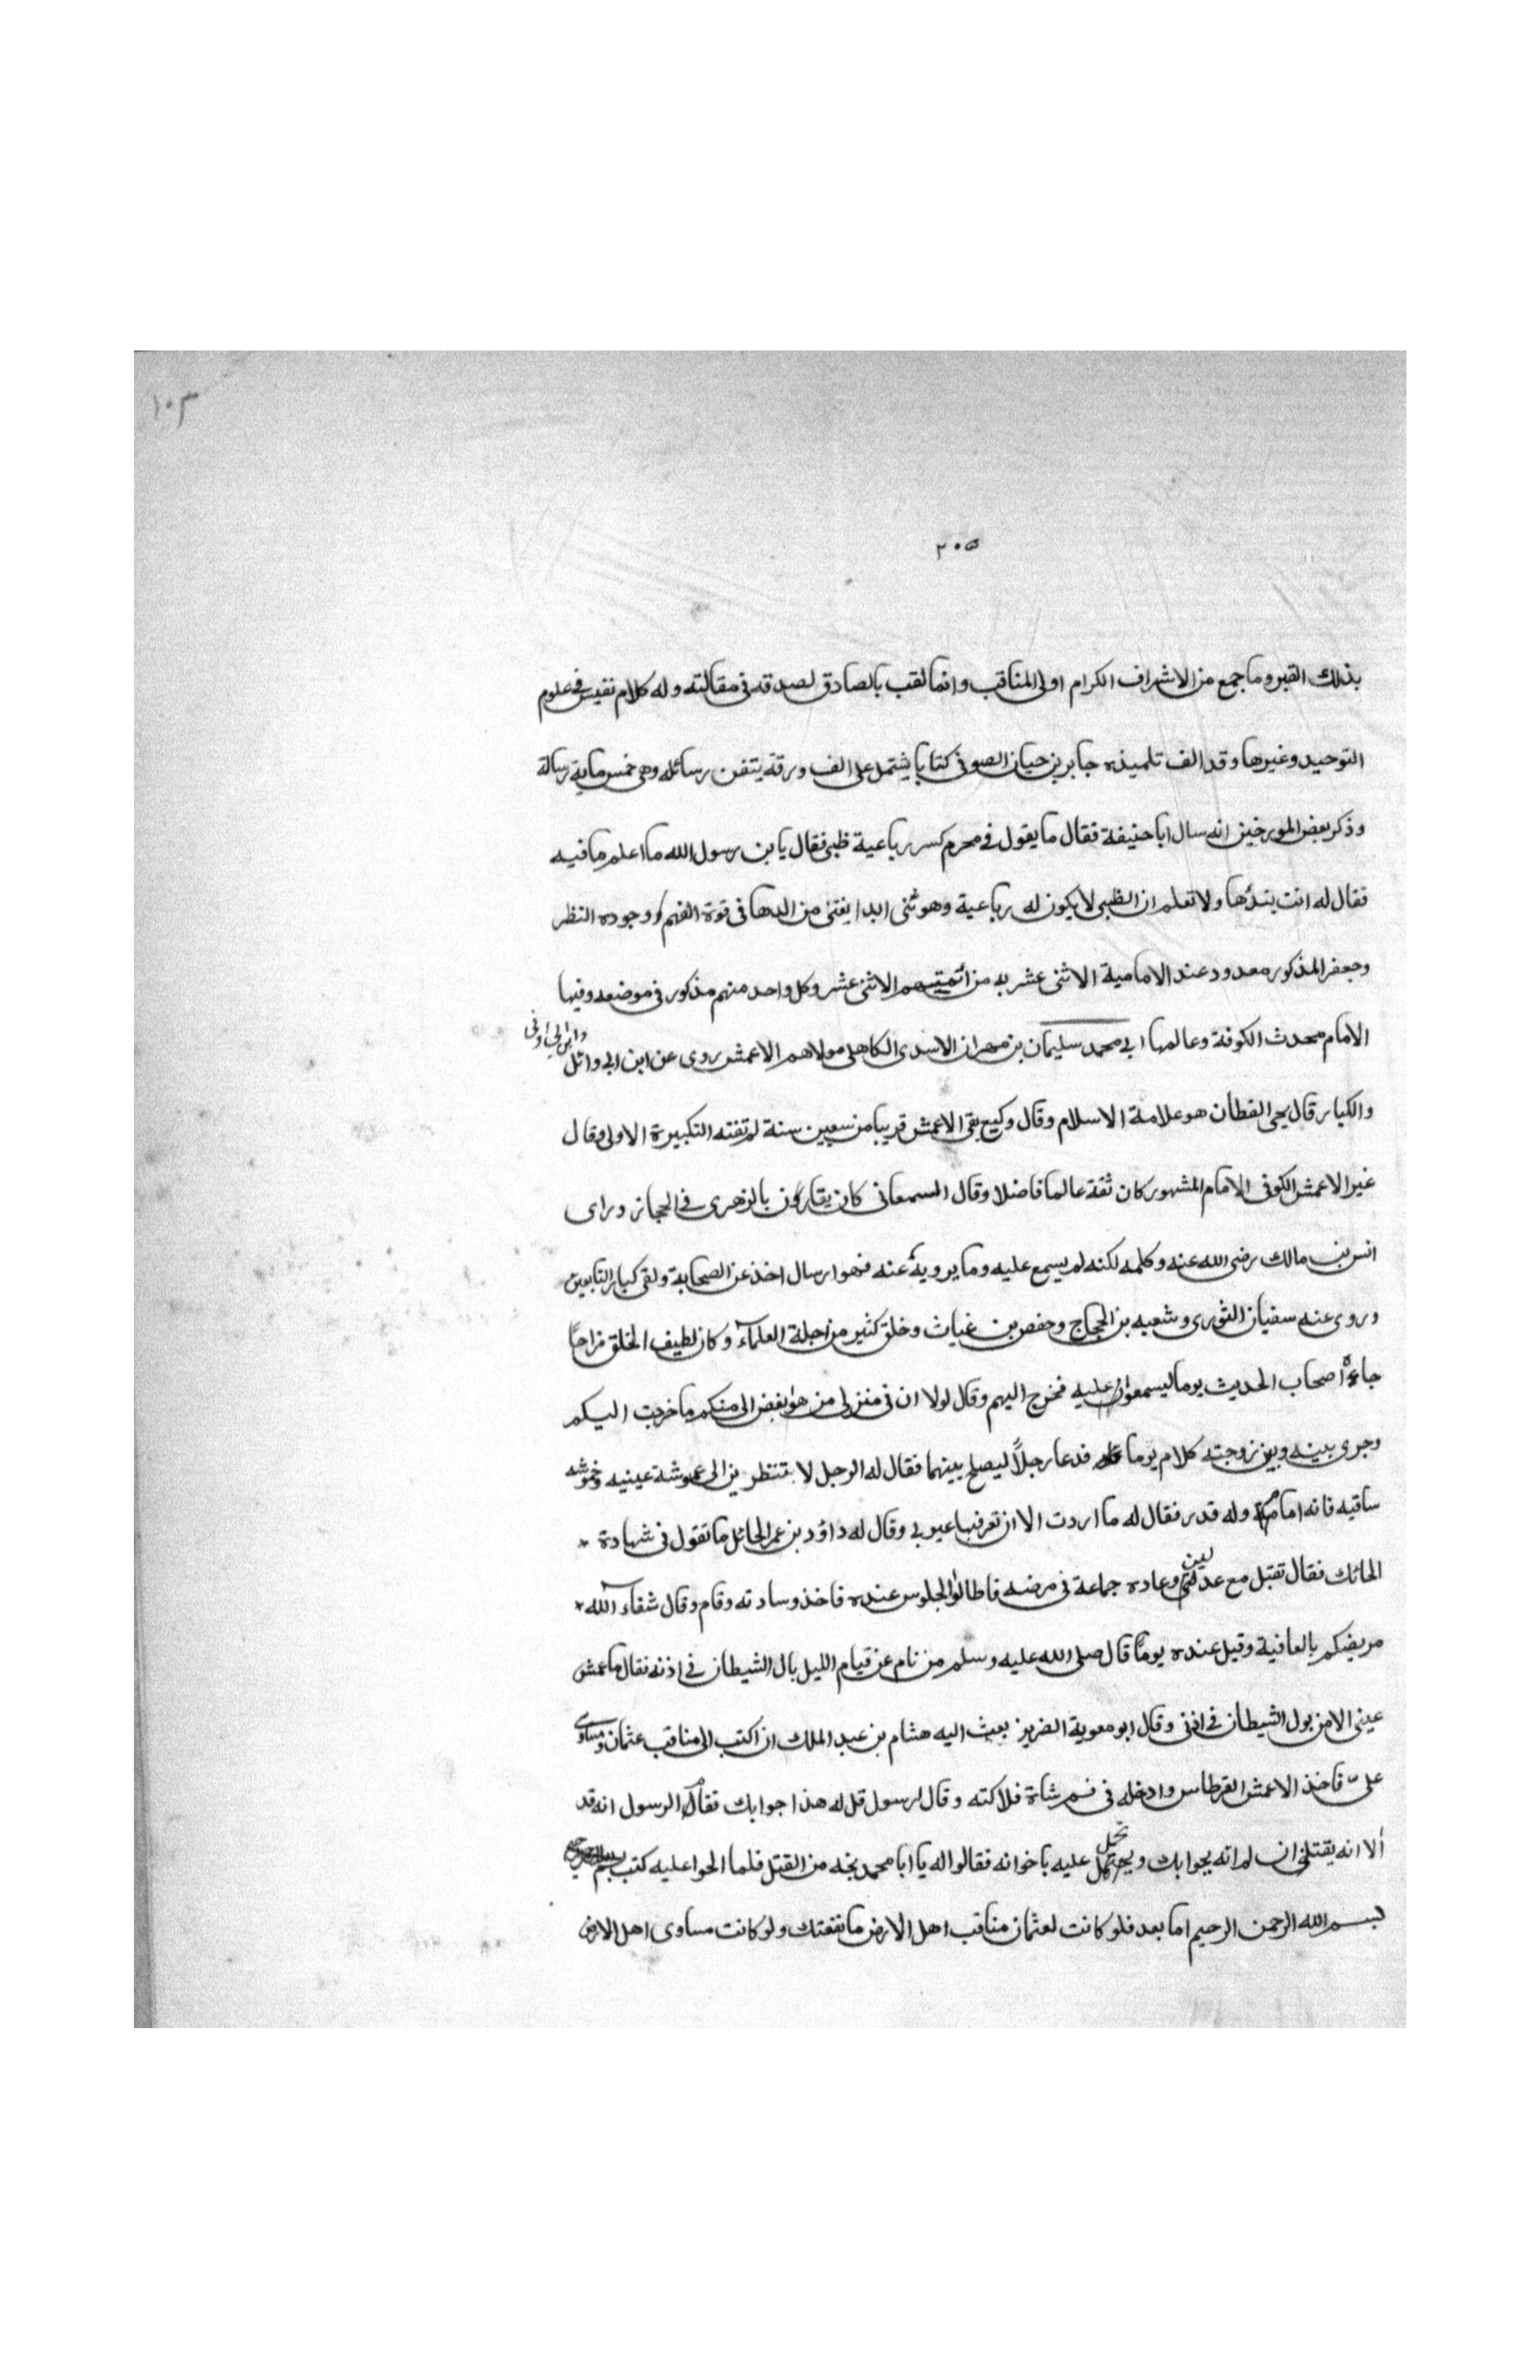 ١٠٣
٢٠٥
بذلك القبر وما جمع من الاشراف الكرام اولى المناقب وانما لقب بالصادق لصدقه فى مقالته وله كلام نفيس فى علوم
التوحيد وغيرها وقد الف تلميذه جابر بن حيان الصوفى كتابا يشتمل على الف ورقة يتفن رسائله وهى خمس ماية رسالة
وذكر بعض المورخين انه سال ابا حنيفة فقال ما يقول فى محرم كسر رباعية ظبى فقال يا بن رسول الله ما اعلم ما فيه
فقال له انت ولا تعلم ان الظبى لا يكون له رباعية وهو ثنى ابدا يفتى من الدها فى قوة الفهم ووجوده النظر
وجعفر المذكور معدود عند الامامية الاثنى عشر به من ائمتهم الاثنى عشر وكل واحد منهم مذكور فى موضعه وفيها
الامام محدث الكوفة وعالمها ابى محمد سليمان بن مهران الاسدى الكاهلى مولاهم الاعمش روى عن ابن ابى وائل
وابن ابى اوفى
والكبار قال يحى القطان هو علامة الاسلام وقال وكيع بقى الاعمش قريبا من سبعين سنة لم تفته التكبيرة الاولى وقال
غير الاعمش الكوفى الامام المشهور كان ثقة عالما فاضلا وقال السمعانى كان يقارون بالزهرى فى الحجاز وراى
انس بن مالك رضى الله عنه وكلمه لكنه لم يسمع عليه وما يرويه عنه فهو ارسال اخذ عن الصحابة ولقى كبار التابعين
وروى عنه سفيان الثورى وشعبه بن الحجاج وحفص بن غياث وخلق كثير من اجلة العلماء وكان لطيف الخلق مزاحا
جاءه اصحاب الحديث يوما ليسمعوا عليه فخرج اليهم وقال لولا ان فى منزلى من هو ابغض الى منكم ما خرجت اليكم
وجرى بينه وبين زوجته كلام يوما فدعا رجلاً ليصلح بينهما فقال له الرجل لا تنظرين الى عموشة عينيه وخموشه
ساقيه فانه امام وله قدر فقال له ما اردت الا ان تعرفها عيوبى وقال له داؤد بن عمر الحائل ما تقول فى شهادة
الحائك فقال تقبل مع عدلين وعاده جماعة فى مرضه فاطالوا الجلوس عنده فاخذ وسادته وقام وقال شفاء الله
مريضكم بالعافية وقيل عنده يوما قال صلى الله عليه وسلم من نام عن قيام الليل بال الشيطان فى اذنه فقال ما عمش
عينى الا من بول الشيطان فى اذنى وقال ابو معوية الضرير بعث اليه هشام بن عبد الملك ان اكتب الى مناقب عثمان ومساوى
على فاخذ الاعمش القرطاس وادخله فى فم شاة فلاكته وقال لرسول قل له هذا جوابك فقال الرسول انه قد
ألا انه يقتلنى ان لم اته بجوابك وتحمل عليه باخوانه فقالوا له يا ابا محمد نجه من القتل فلما الحوا عليه كتب
بسم الله الرحمن الرحيم اما بعد فلو كانت لعثمان مناقب اهل الارض ما نفعتك ولو كانت مساوى اهل الارض